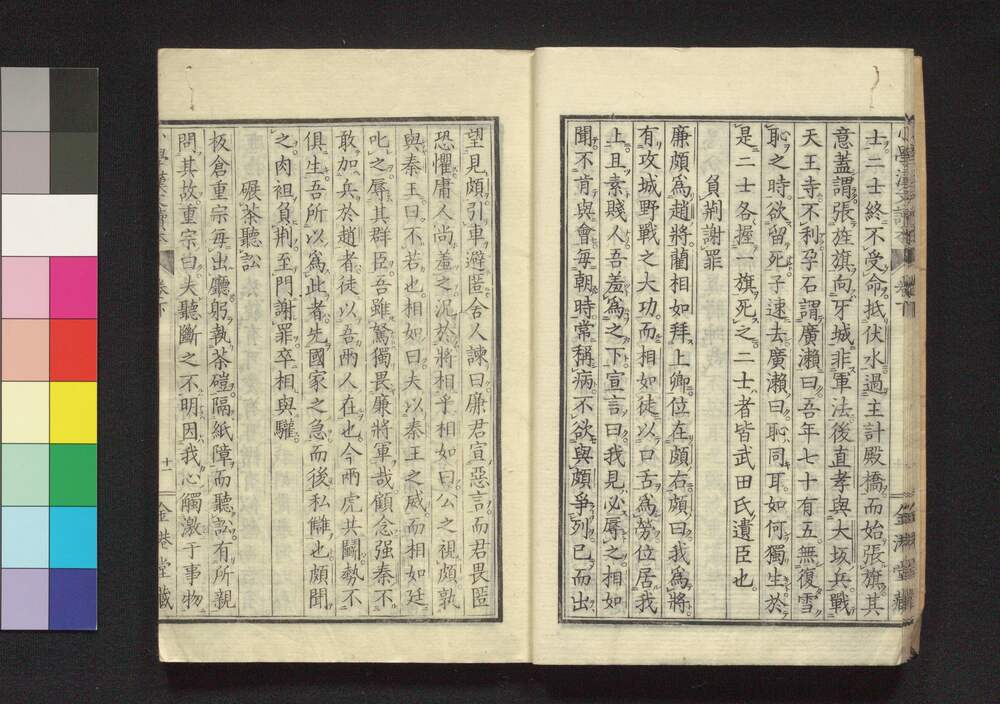 士二士終不受命抵伏水過主計殿橋而始張旗其
意蓋謂張旌旗向牙城非軍法後直孝與大坂兵戰
天王寺不利孕石謂廣瀨曰吾年七十有五無復雪
恥之時欲留死子速去廣瀨曰恥同耳如何獨生於
是二士各握一旗死之二士者皆武田氏遺臣也
負荊謝罪
廉頗爲趙將藺相如拜上卿位在頗右頗曰我爲將
有攻城野戰之大功而相如徒以口舌爲勞位居我
上且素賤人吾羞爲之下宣言曰我見必辱之相如
聞不肯與會每朝時常稱病不欲與頗爭列已而出
望見頗引車避匿舍人諫曰廉君宣惡言而君畏匿
恐懼庸人尚羞之況於將相乎相如曰公之視頗孰
與秦王曰不若也相如曰夫以秦王之威而相如廷
叱之辱其群臣吾雖駑獨畏廉將軍哉顧念强秦不
敢加兵於趙者徒以吾兩人在也今兩虎共鬪勢不
俱生吾所以爲此者先國家之急而後私讎也頗聞
之肉袒負荊至門謝罪卒相與驩
碾茶聽訟
板倉重宗每出廳躬執茶磑隔紙障而聽訟有所親
問其故重宗曰夫聽斷之不明因我心觸激于事物
卷下
十一
金港堂藏